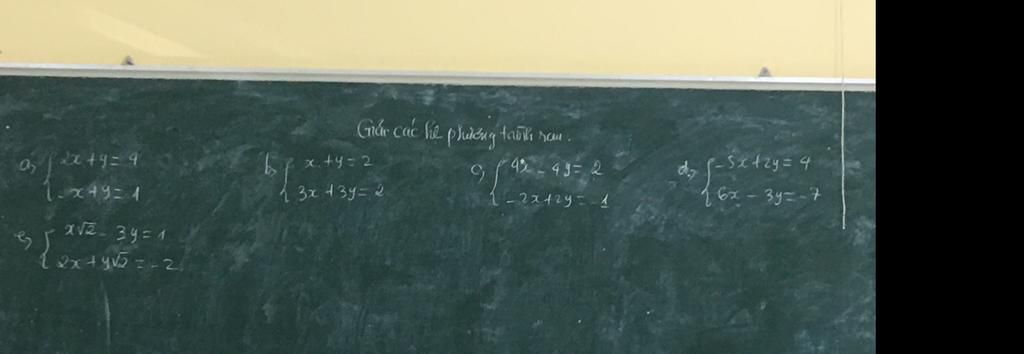 Giải các hệ phương trình sau.
a, { 2x + y = 4
- x + y = 1
b, { x + y = 2
3x + 3y = 2
c, { 4x - 4y = 2
- 2x + 2y = - 1
d, { - 5x + 2y = 4
6x - 3y = - 7
e, { x√2 - 3y = 1
2x + y√2 = - 2